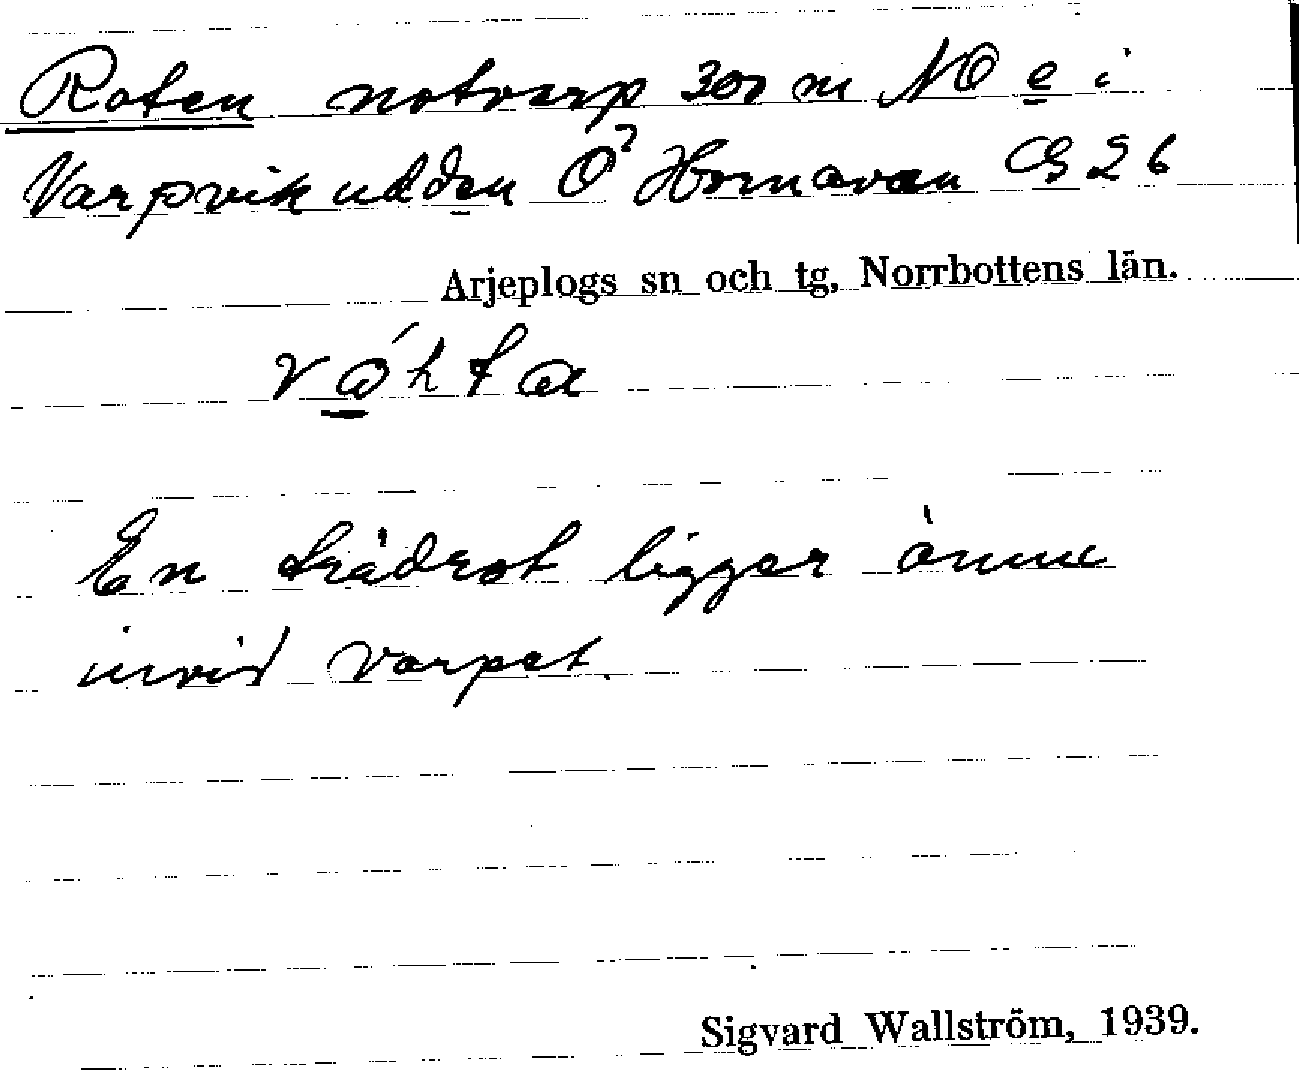 Roten notvarp 300 m NO e i
Varpvikudden Ö Hornavan G 26
Arjeplogs sn och tg, Norrbottens län.
En trädrot ligger ännu
invid varpet.
Sigvard Wallström, 1939.